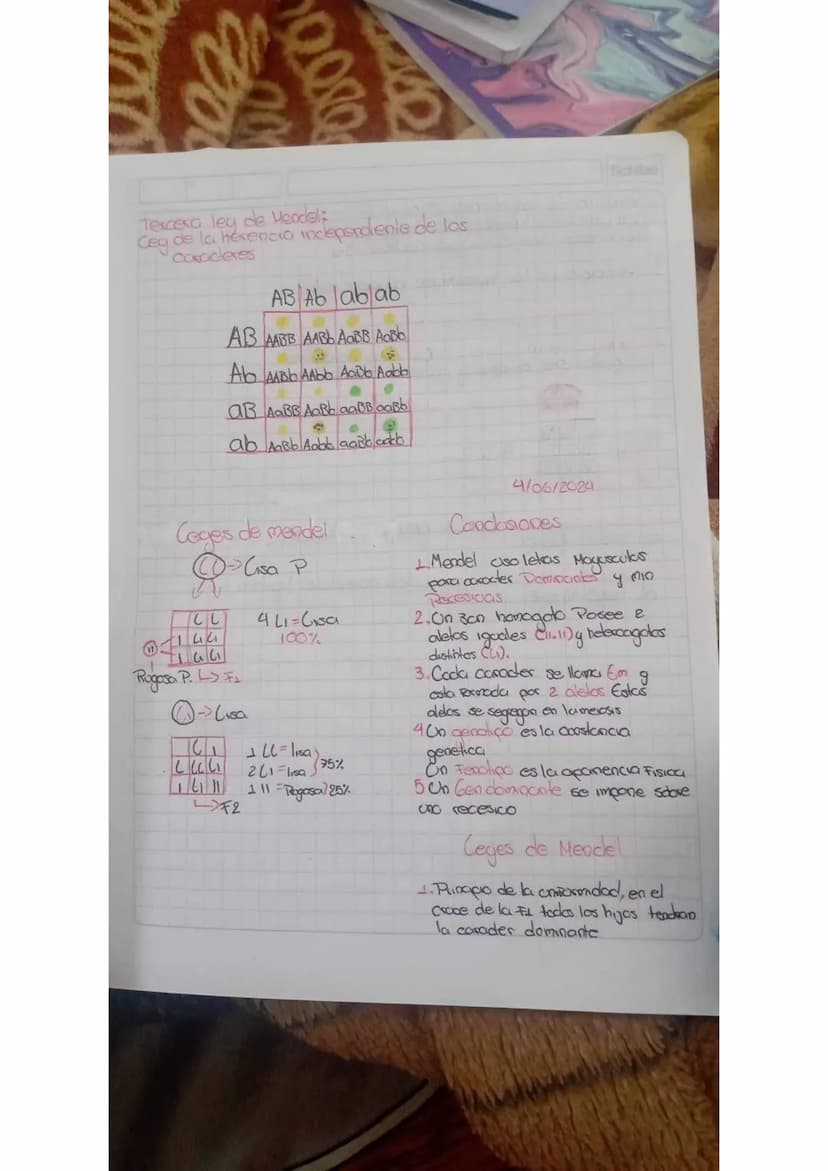 Scribe
Tercera ley de Mendel:
Ley de la herencia independiente de los
caracteres
AB Ab ab ab
AB AABB AABb AaBB AaBb
Ab AABb AAbb AaBb Aabb
aB AaBB AaBb aaBB aaBb
ab AaBb Aabb aaBb aabb
4/06/2024
Leyes de mendel
LL → Lisa P
L L
l Ll Ll
l Ll Ll
ll
4 Ll = Lisa
100%
Rugosa P. → F1
Ll → Lisa
L l
L LL Ll
l Ll ll
→ F2
1 LL = lisa
2 Ll = lisa } 75%
1 ll = Rugosa } 25%
Conclusiones
1. Mendel uso letras Mayusculas
para caracter Dominantes y min
Recesivas
2. Un gen homogoto Posee 2
alelos iguales (ll.ll) y heterocigotos
distintos (Ll).
3. Cada caracter se llama Em y
esta formada por 2 alelos Estos
alelos se segregan en la meiosis
4 Un genotipo es la constancia
genetica
Un Fenotipo es la apariencia Fisica
5 Un Gen dominante se impone sobre
uno recesico
Leyes de Mendel
1. Principio de la uniformidad, en el
cruce de la F1 todos los hijos tendran
la caracter dominante